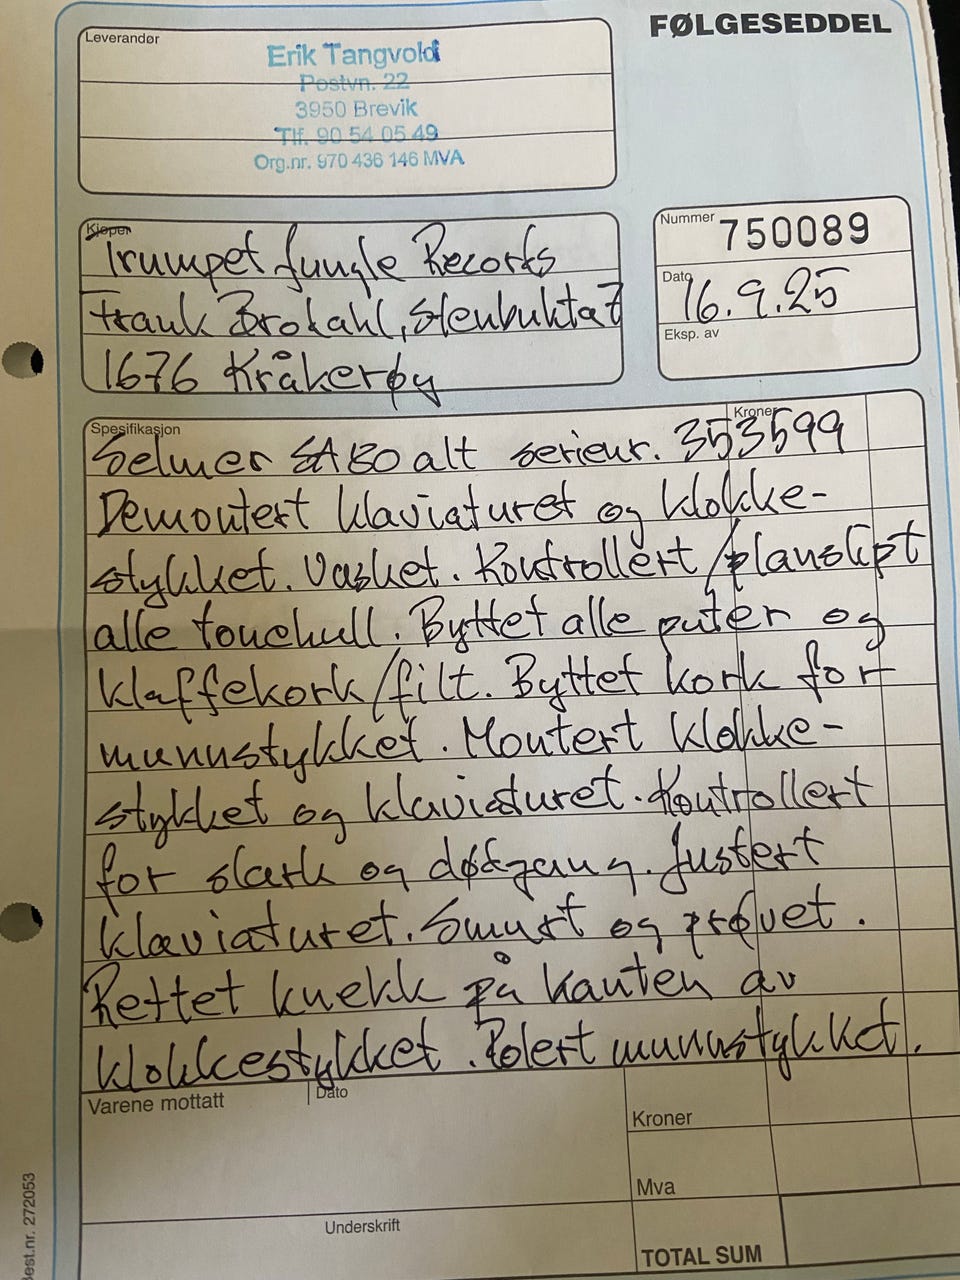 FØLGESEDDEL
Leverandør
Erik Tangvold
Postvn. 22
3950 Brevik
Tlf. 90 54 05 49
Org.nr. 970 436 146 MVA
Kjøper
Trumpet Jungle Records
Frank Brodahl, Stenbukta 7
1676 Kråkerøy
Nummer 750089
Dato 16.9.25
Eksp. av
Spesifikasjon
Kroner
Selmer SA80 alt serienr. 353599
Demontert klaviaturet og klokke-
stykket. Vasket. Kontrollert/planslipt
alle tonehull. Byttet alle puter og
klaffekork/filt. Byttet kork for
munnstykket. Montert klokke-
stykket og klaviaturet. Kontrollert
for slark og dødgang. Justert
klaviaturet. Smurt og prøvet.
Rettet knekk på kanten av
klokkestykket. Polert munnstykket.
Varene mottatt
Dato
Kroner
Mva
Underskrift
TOTAL SUM
Best.nr. 272053